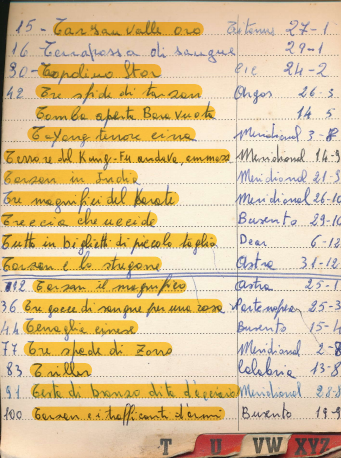 15 - Tarzan valle oro Titanus 27-1
16 Terrarossa di sangue 29-1
30 - Topolino Star Cic 24-2
42 Tre sfide di tarzan Argos 26-3
Tomba aperta Bara vuota 14 5
Tayong terrore cina Meridional 3-8
Terrore del Kung-Fu andava, ammosse Meridional 14-9
Tarzan in India Meridional 21-9
Tre magnifici del Karate Meridional 26-10
Treccia che uccide Buxento 29-10
Tutto in biglietti di piccolo taglio Dear 6-12
Tarzan e lo stregone Astra 31-12
12 Tarzan il magnifico Astra 25-1
36 Tre gocce di sangue per una rosa Partenopea 25-3
44 Tenaglia cinese Buxento 15-4
77 Tre spade di Zorro Meridional 2-8
83 Triller Calabria 13-8
91 Testa di bronzo dita d'acciaio Meridional 28-8
100 Tarzan e i trafficanti d'armi Buxento 19-9
T U VW XYZ